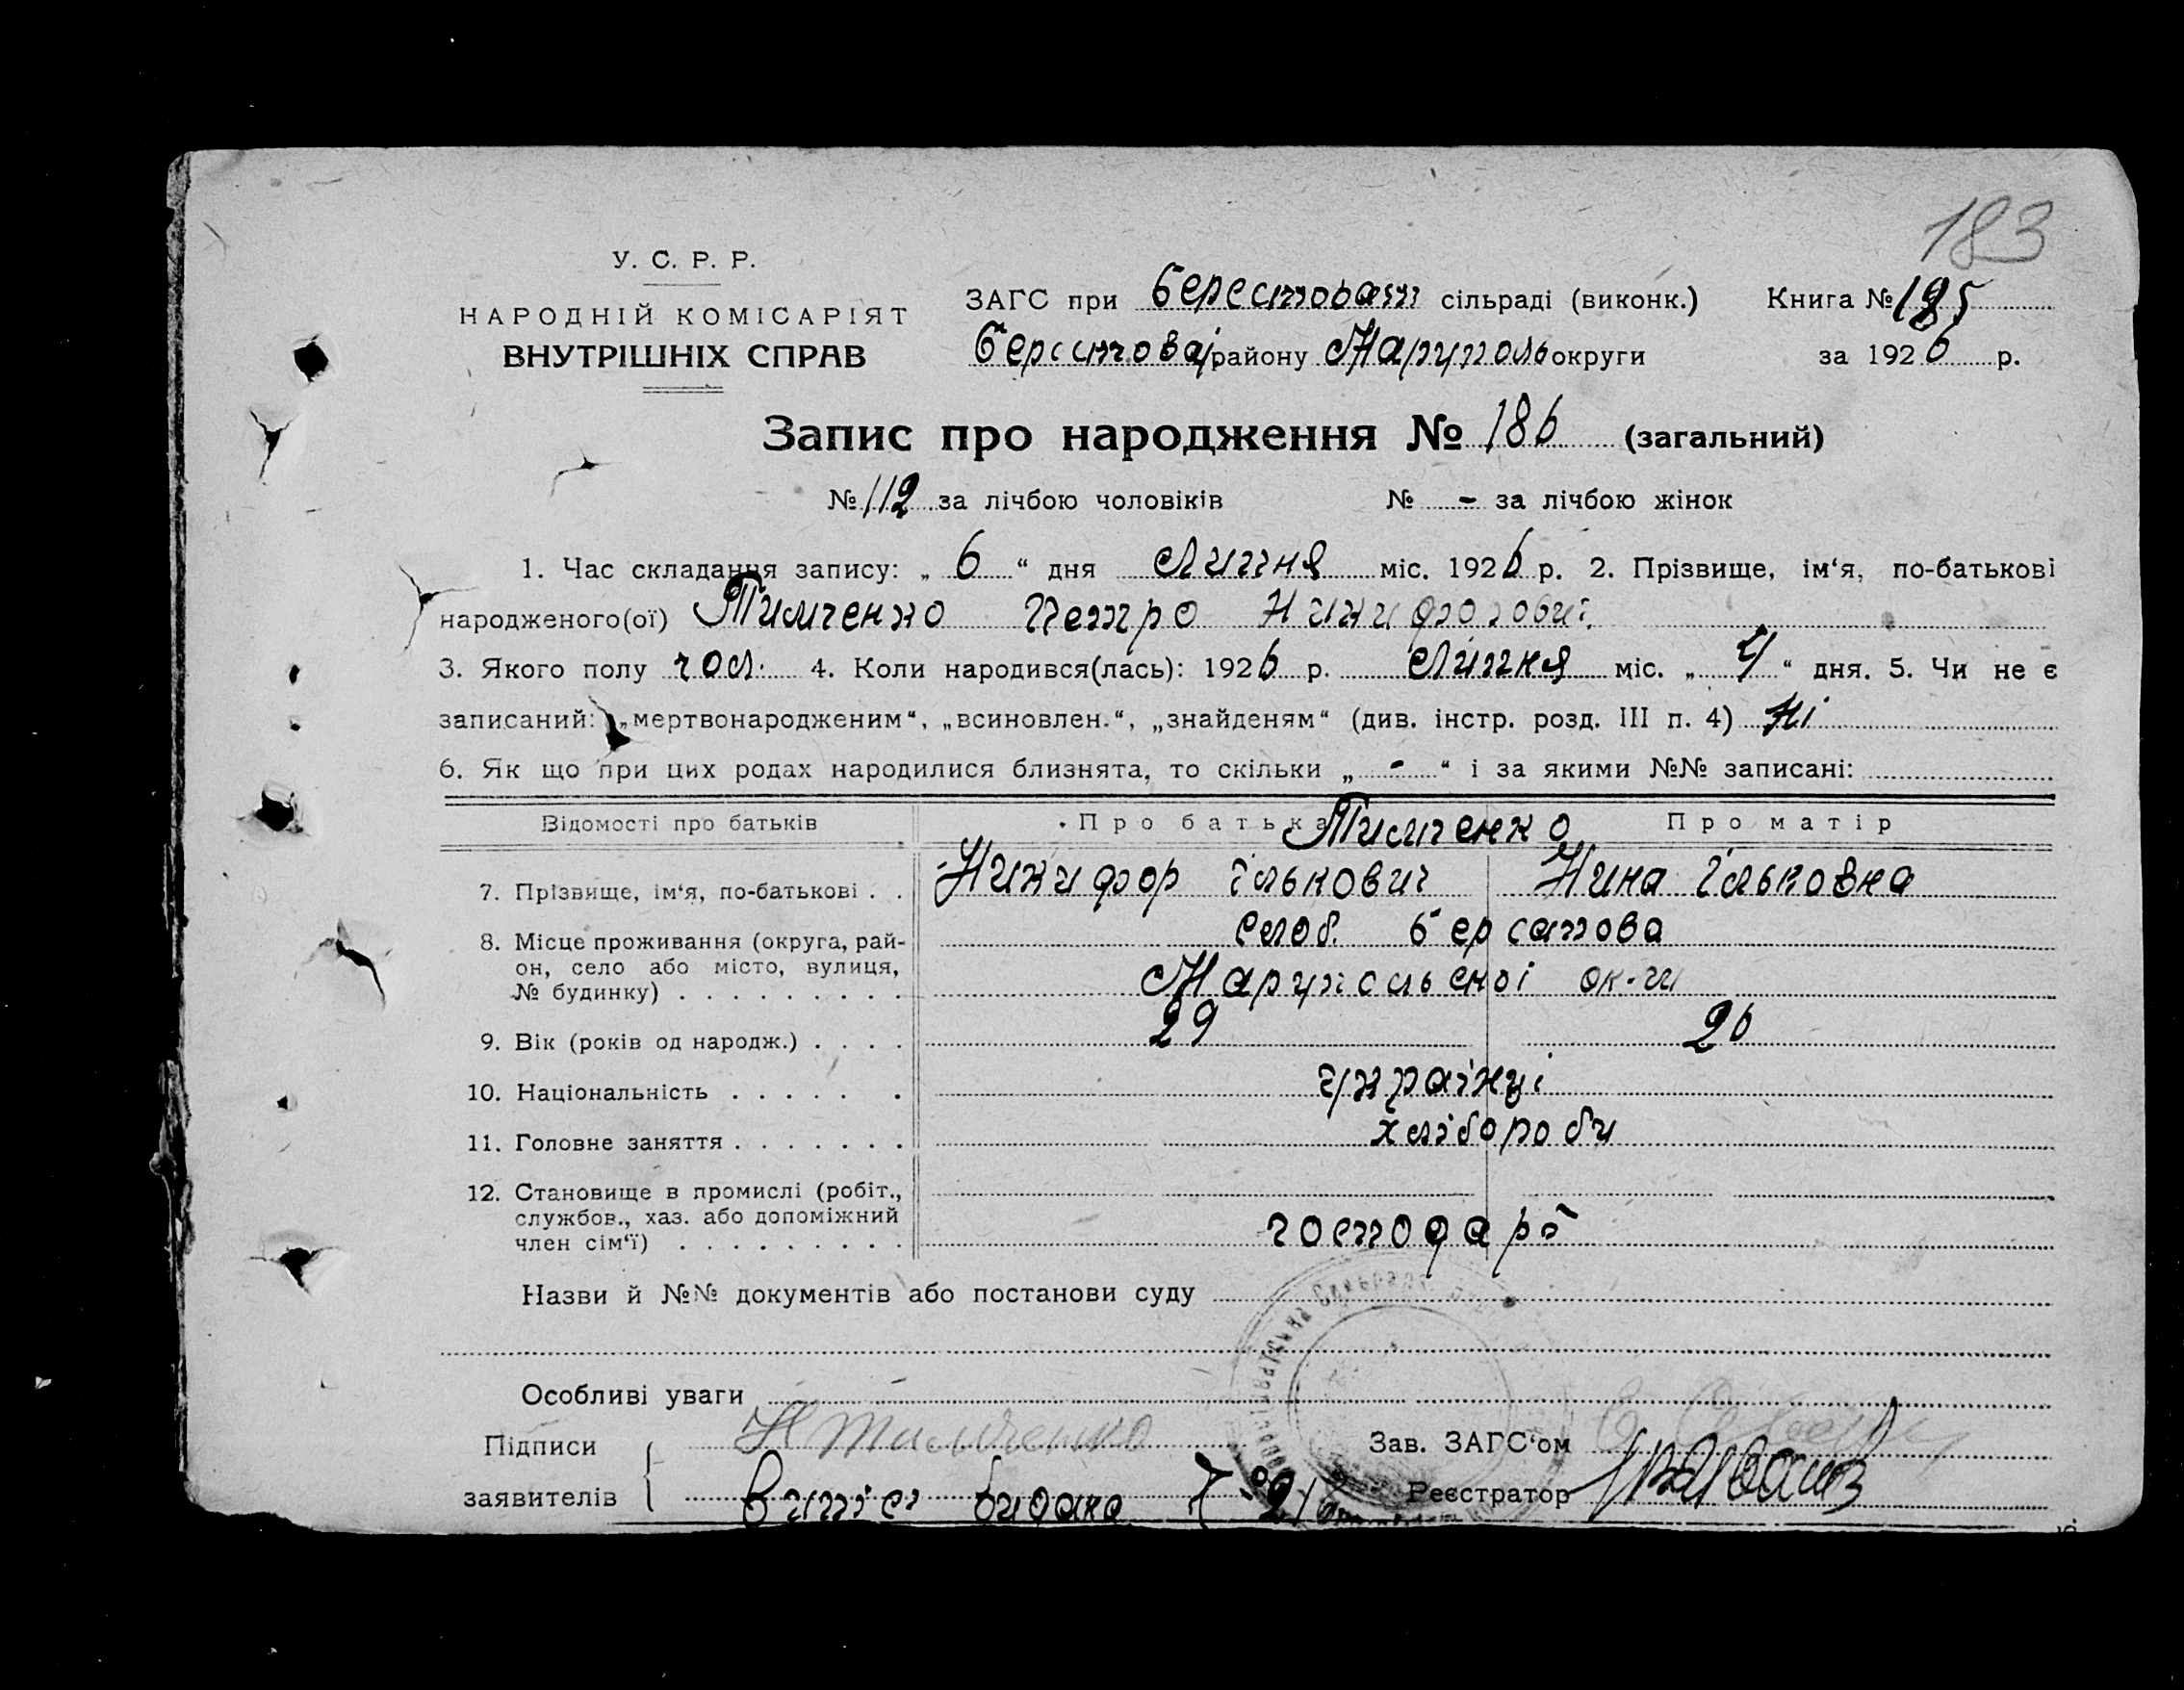 183
У. С. Р. Р.
НАРОДНІЙ КОМІСАРІЯТ
ВНУТРІШНІХ СПРАВ
ЗАГС при Берестоват сільраді (виконк.) Книга № 185
Берестова района Маруполь округи за 1926 р.
Запис про народження № 186 (загальний)
№ 112 за лічбою чоловіків № - за лічбою жінок
1. Час складання запису: „ 6 “ дня Липня міс. 1926 р. 2. Прізвище, ім‘я, по-батькові
народженого(ої) Тимченко Петро Никифорович
3. Якого полу чол. 4. Коли народився(лась): 1926 р. Липня міс. „ 4 “ дня. 5. Чи не є
записаний: „мертвонародженим“, „всиновлен.“, „знайденям“ (див. інстр. розд. III п. 4) Ні
6. Як що при цих родах народилися близнята, то скільки „ - “ і за якими №№ записані:
Відомості про батьків Про батька Про матір
Тимченко
7. Прізвище, ім‘я, по-батькові . . Никифор Ількович Нина Ільковна
8. Місце проживання (округа, рай-
он, село або місто, вулиця,
№ будинку) . . . . . . . . .
слоб. Берстова
Марупольскоі ок-ги
9. Вік (років од народж.) . . . . 29 26
10. Національність . . . . . . українці
11. Головне заняття . . . . . . . хлібороби
12. Становище в промислі (робіт.,
службов., хаз. або допоміжний
член сім‘ї) . . . . . . . . .
господарі
Назви й №№ документів або постанови суду
Особливі уваги
Підписи Н Тимченко Зав. ЗАГС‘ом
заявителів Витяг видано Реєстратор